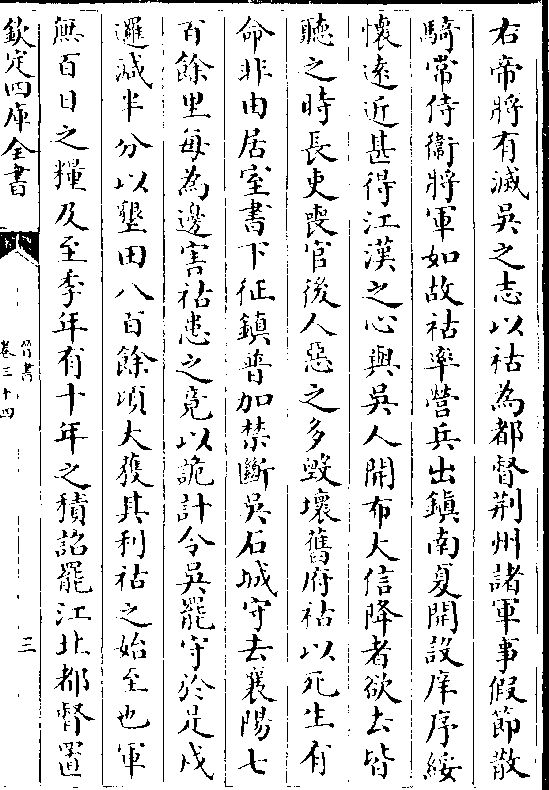 右帝將有滅吳之志以祜為都督荆州諸軍事假節散
騎常侍衞將軍如故祜率營兵出鎮南夏開設庠序綏
懷逺近甚得江漢之心與吳人開布大信降者欲去皆
聽之時長吏喪官後人惡之多毁壞舊府祜以死生有
命非由居室書下征鎮普加禁斷吳石城守去襄陽七
百餘里每為邊害祜患之竟以詭計令吳罷守於是戍
邏減半分以墾田八百餘頃大獲其利祜之始至也軍
無百日之糧及至季年有十年之積詔罷江北都督置
欽定四庫全書
晉書
卷三十四
三